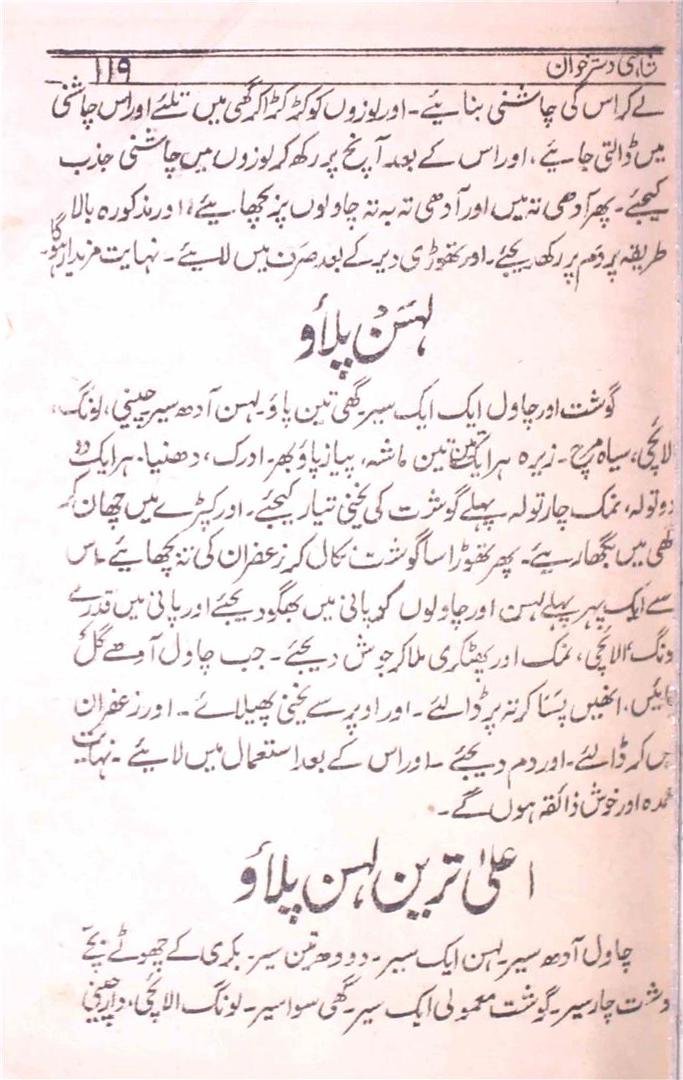 شاہی دسترخوان ۱۱۹
لے کر اس کی چاشنی بنائیے۔ اور لوزوں کو کڑکڑا کر گھی میں تلئے اور اس چاشنی
میں ڈالتی جائیے، اور اس کے بعد آنچ پر رکھ کر لوزوں میں چاشنی جذب
کیجئے۔ پھر آدھی تہ میں اور آدھی تہ بہ تہ چاولوں پر بچھائیے، اور مذکورہ بالا
طریقہ پر دم پر رکھ دیجئے۔ اور تھوڑی دیر کے بعد صرف میں لائیے۔ نہایت مزیدار ہوگا۔
لہسن پلاؤ
گوشت اور چاول ایک ایک سیر۔ گھی تین پاؤ۔ لہسن آدھ سیر چینی، لونگ،
لائچی، سیاہ مرچ۔ زیرہ ہر ایک تین تین ماشہ، پیاز پاؤ بھر۔ ادرک، دھنیا۔ ہر ایک دو
دو تولہ، نمک چار تولہ پہلے گوشت کی یخنی تیار کیجئے۔ اور کپڑے میں چھان کر
گھی میں بگھاریئے۔ پھر تھوڑا سا گوشت نکال کر زعفران کی تہ بچھایئے۔ اس
سے ایک پہر پہلے لہسن اور چاولوں کو پانی میں بھگو دیجئے اور پانی میں قدرے
ونگ، الائچی، نمک اور پھٹکری ملا کر جوش دیجئے۔ جب چاول آدھے گل
جائیں، انھیں پسا کر تہ پر ڈالئے۔ اور اوپر سے یخنی پھیلائے۔ اور زعفران
پس کر ڈالئے۔ اور دم دیجئے۔ اور اس کے بعد استعمال میں لایئے۔ نہایت
عمدہ اور خوش ذائقہ ہوں گے۔
اعلیٰ ترین لہسن پلاؤ
چاول آدھ سیر۔ لہسن ایک سیر۔ دودھ تین سیر۔ بکری کے چھوٹے بچے
گوشت چار سیر۔ گوشت معمولی ایک سیر۔ گھی سوا سیر۔ لونگ الائچی، دارچینی